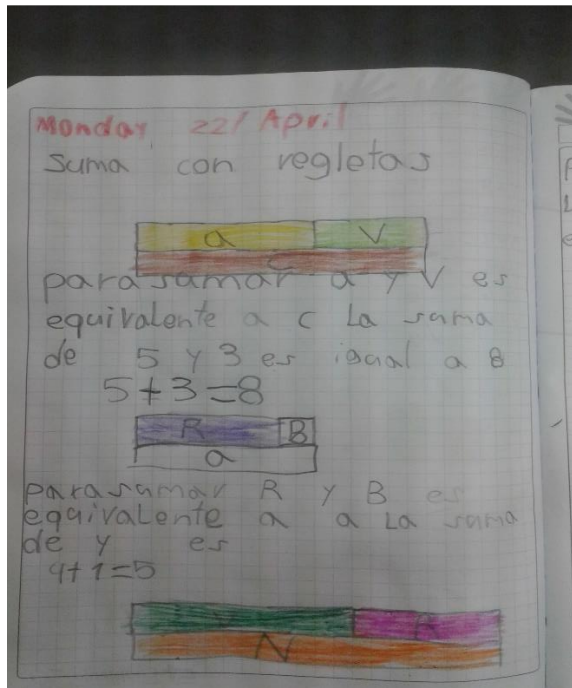 Monday 22/ April
Suma con regletas
a V
C
para sumar a y V es
equivalente a c La suma
de 5 y 3 es igual a 8
5+3=8
R B
a
Para sumar R y B es
equivalente a a La suma
de y es
4+1=5
N